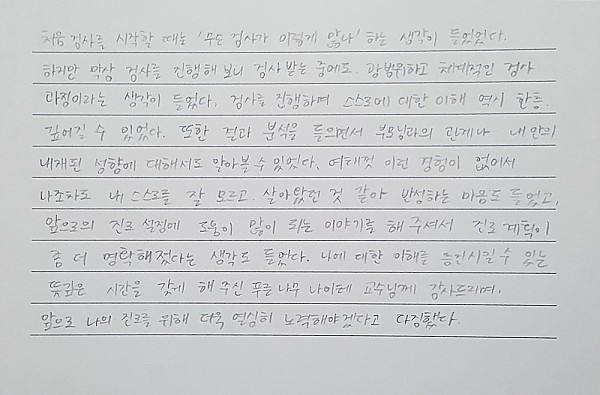 처음 검사를 시작할 때는 '무슨 검사가 이렇게 많나' 하는 생각이 들었었다.
하지만 막상 검사를 진행해 보니 검사 받는 중에도 광범위하고 체계적인 검사
과정이라는 생각이 들었다. 검사를 진행하며 스스로에 대한 이해 역시 한층
깊어질 수 있었다. 또한 결과 분석을 들으면서 부모님과의 관계나 내 안의
내재된 성향에 대해서도 알아볼 수 있었다. 여태껏 이런 경험이 없어서
나조차도 내 스스로를 잘 모르고 살아왔던 것 같아 반성하는 마음도 들었고,
앞으로의 진로 설정에 도움이 많이 되는 이야기를 해 주셔서 진로 계획이
좀 더 명확해졌다는 생각도 들었다. 나에 대한 이해를 증진시킬 수 있는
뜻깊은 시간을 갖게 해 주신 푸른 나무 나이테 교수님께 감사드리며,
앞으로 나의 진로를 위해 더욱 열심히 노력해야겠다고 다짐했다.